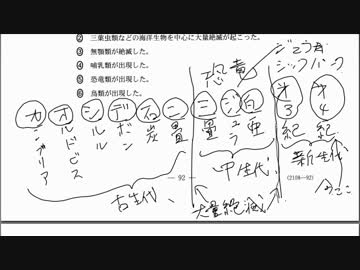 ② 三葉虫類などの海洋生物を中心に大量絶滅が起こった。
③ 無顎類が絶滅した。
④ 哺乳類が出現した。
⑤ 恐竜類が出現した。
⑥ 鳥類が出現した。
恐竜
ジュラ
シックパーク
カ オ シ デ 石 二 三 ジ 白 オ3 オ4
カンブリア
オルドビス
シルル
デボン
石炭
二畳
三畳
ジュラ
白亜
紀 紀
古生代
中生代
新生代
大量絶滅
— 92 —
(2108—92)